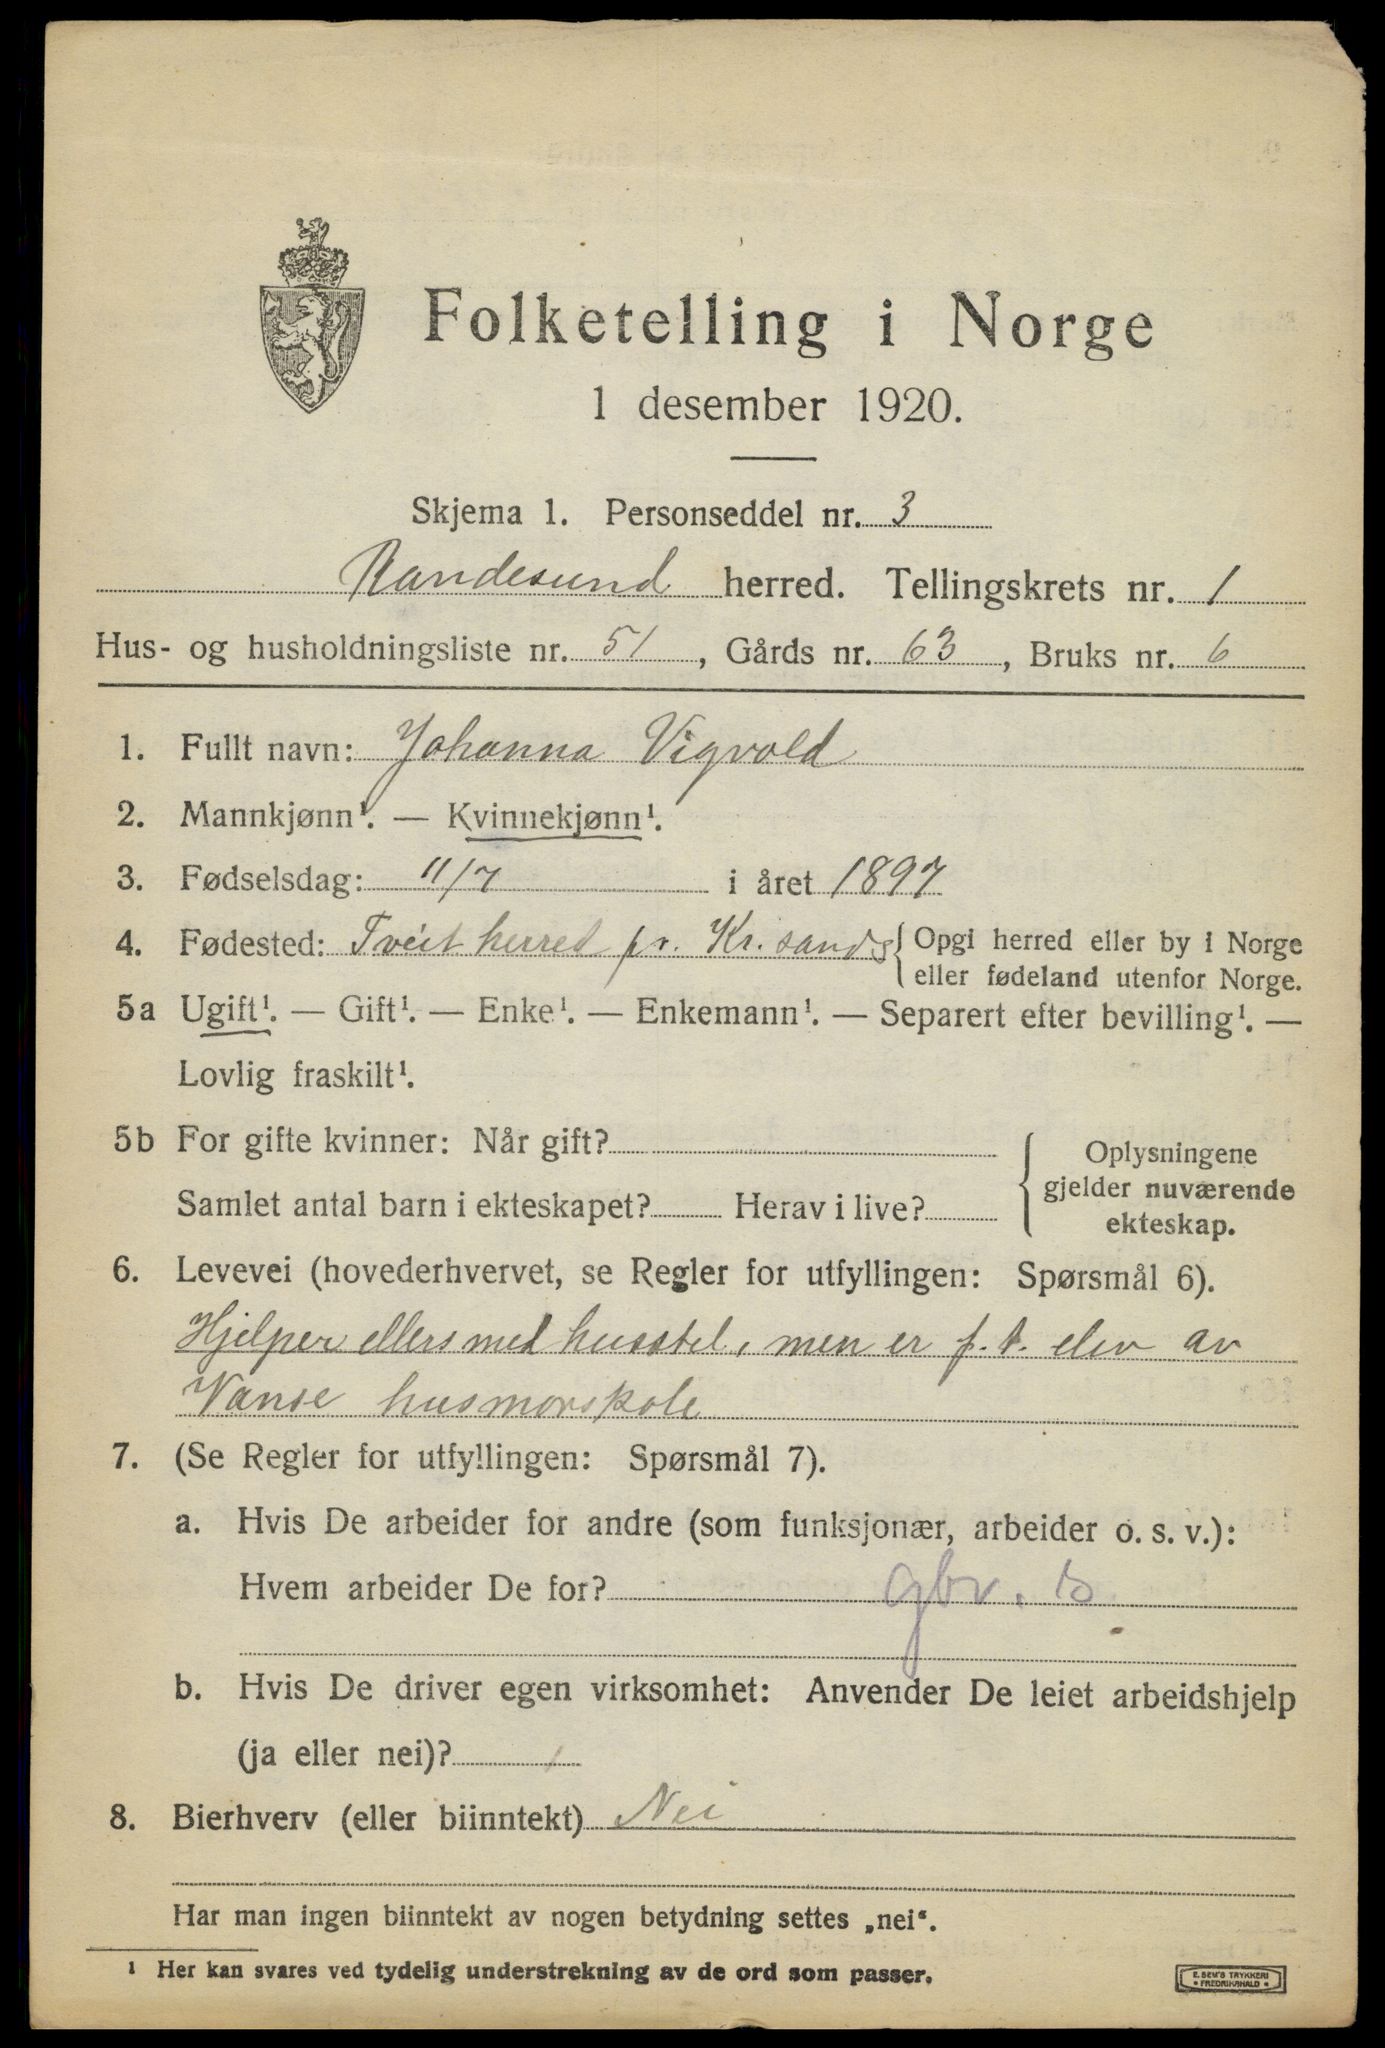 Folketelling i Norge
1 desember 1920.
Skjema 1. Personseddel nr. 3
Randesund herred. Tellingskrets nr. 1
Hus- og husholdningsliste nr. 51, Gårds nr. 63, Bruks nr. 6
1. Fullt navn: Johanna Vigvold
2. Mannkjønn¹. — Kvinnekjønn¹.
3. Fødselsdag: 11/7 i året 1897
4. Fødested: Tveit herred pr. Kr.sands { Opgi herred eller by i Norge
eller fødeland utenfor Norge.
5a Ugift¹. — Gift¹. — Enke¹. — Enkemann¹. — Separert efter bevilling¹. —
Lovlig fraskilt¹.
5b For gifte kvinner: Når gift?
Samlet antal barn i ekteskapet? Herav i live?
{ Oplysningene
gjelder nuværende
ekteskap.
6. Levevei (hovederhvervet, se Regler for utfyllingen: Spørsmål 6).
Hjelper ellers med husstel, men er f.t. elev av
Vanse husmorskole
7. (Se Regler for utfyllingen: Spørsmål 7).
a. Hvis De arbeider for andre (som funksjonær, arbeider o. s. v.):
Hvem arbeider De for? gbr.
b. Hvis De driver egen virksomhet: Anvender De leiet arbeidshjelp
(ja eller nei)?
8. Bierhverv (eller biinntekt) Nei
Har man ingen biinntekt av nogen betydning settes „nei“.
¹ Her kan svares ved tydelig understrekning av de ord som passer.
E. SEM'S TRYKKERI
FREDRIKSHALD